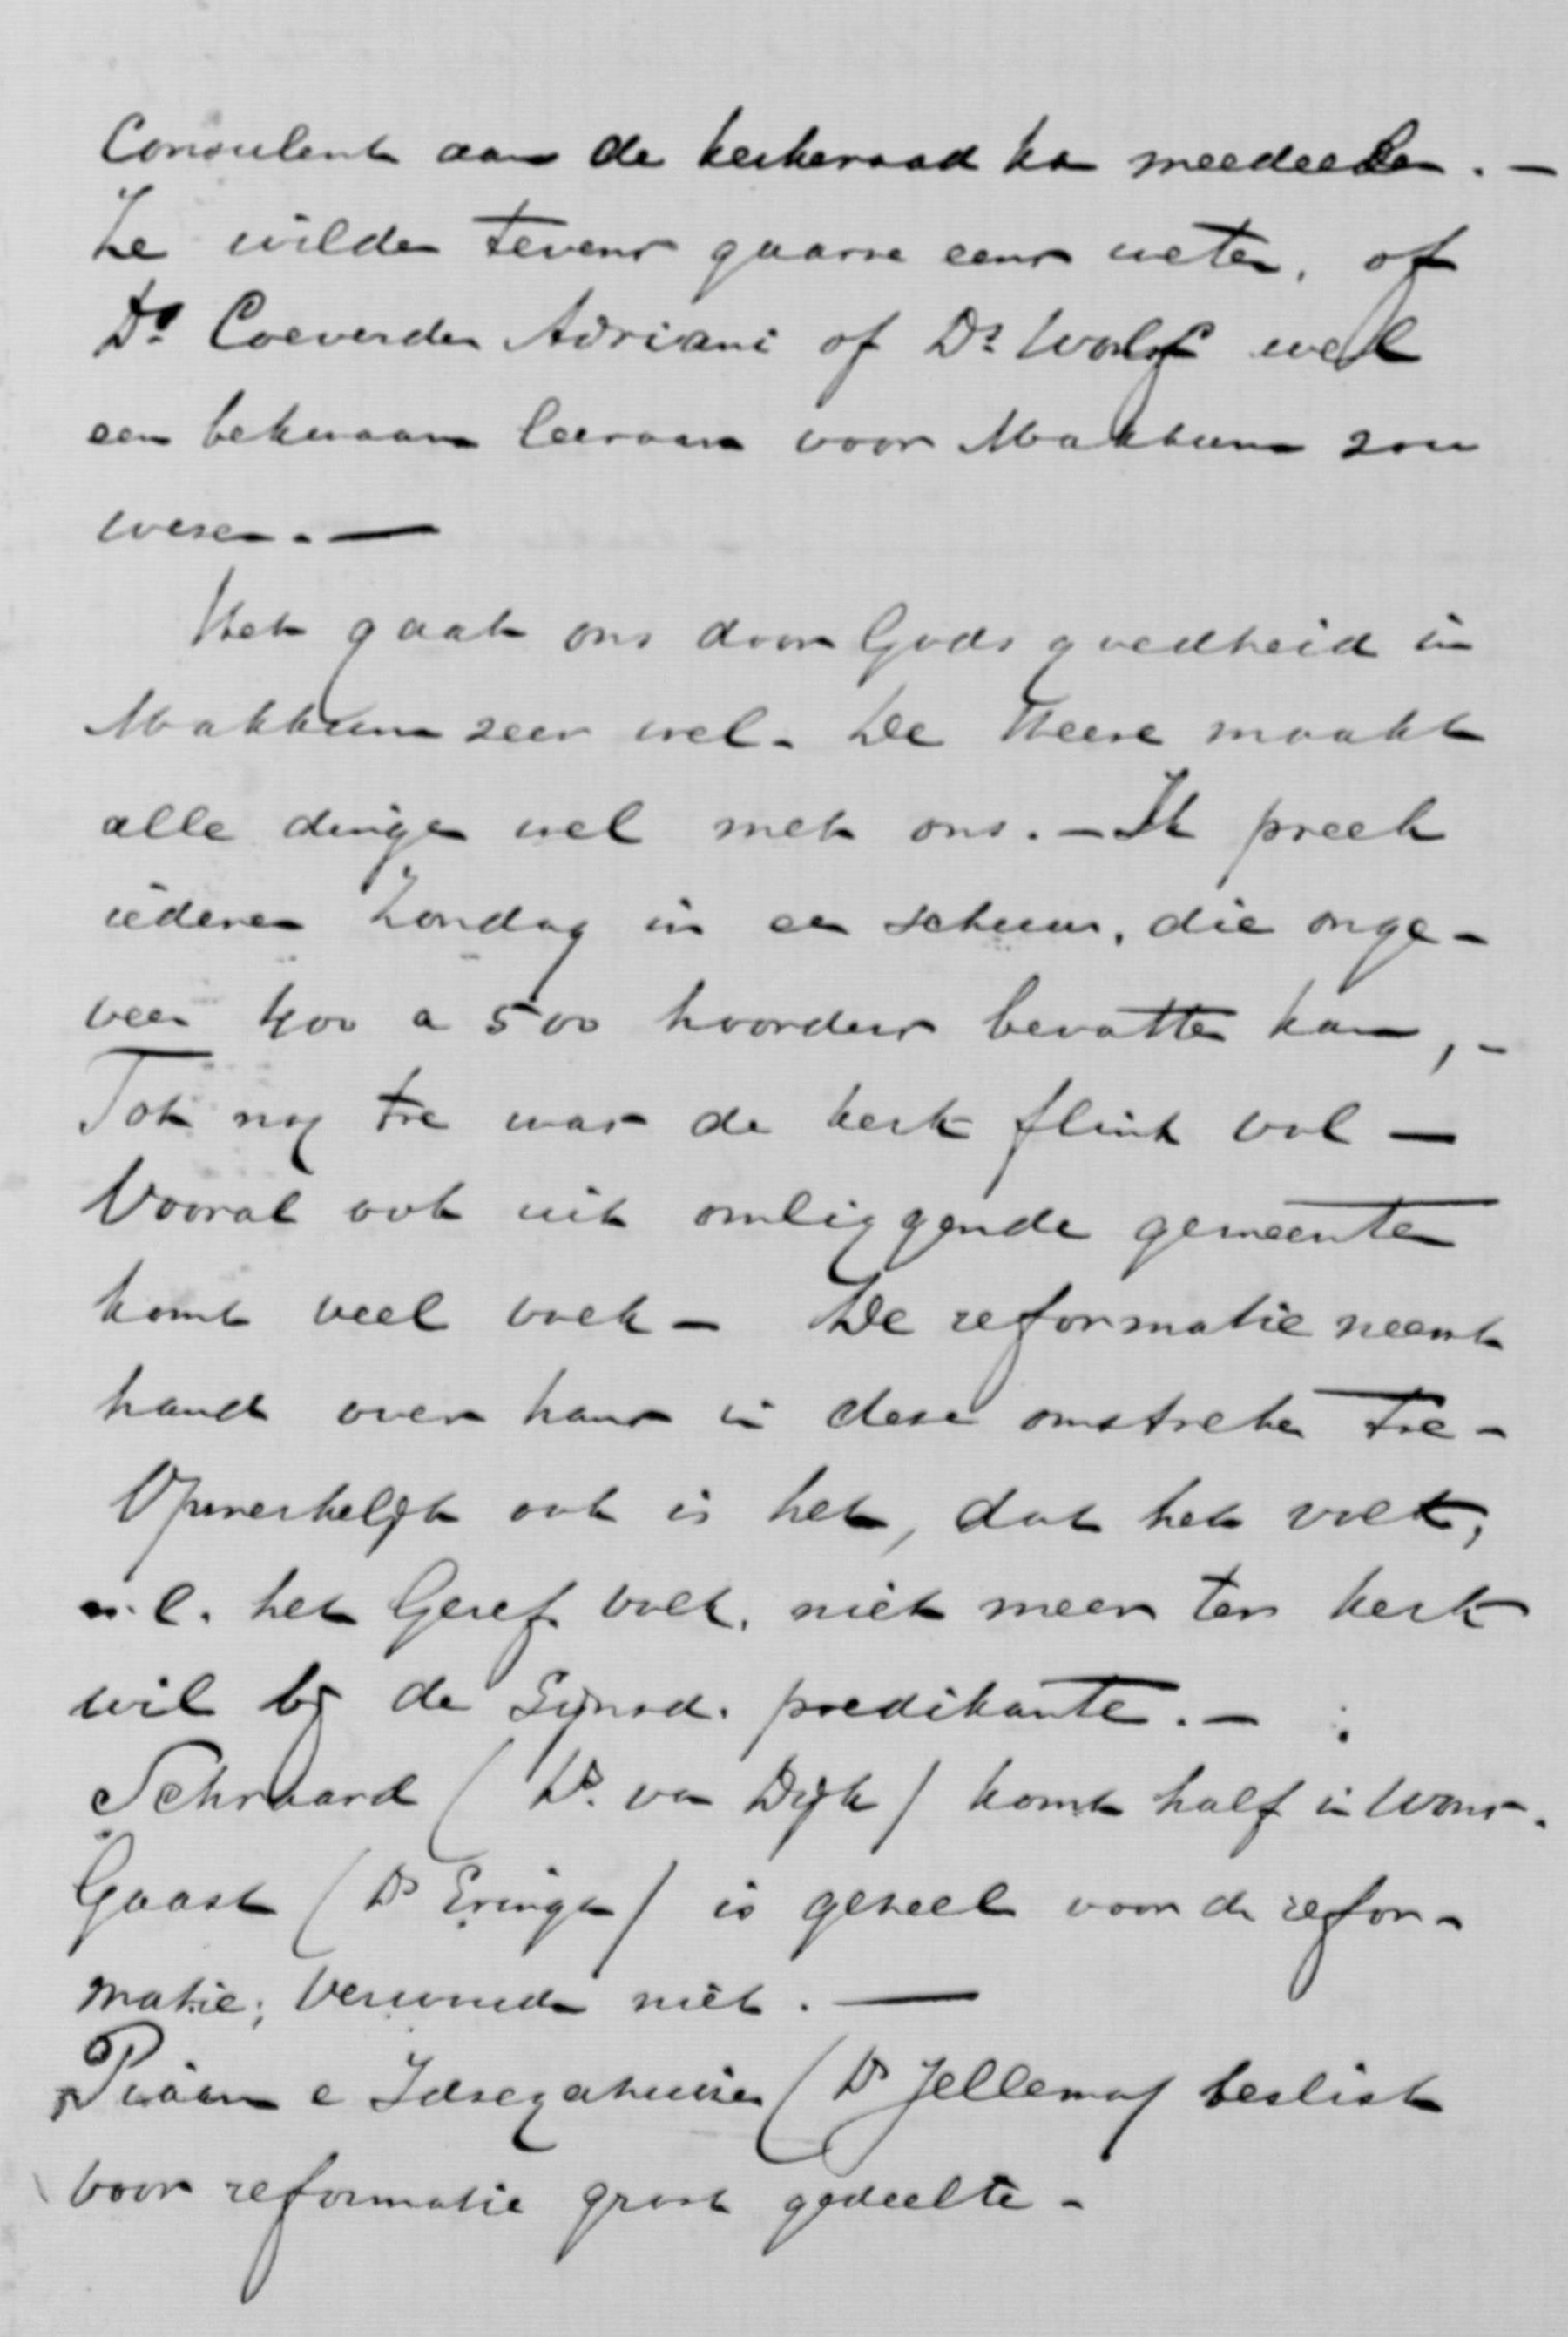 Consulent aan de kerkeraad kan meedeelen. —
Ze wilden tevens gaarne eens weten, of
Ds Coeverden Adriani of Ds Wolff wel
een bekwaam leeraar voor Makkum zou
wezen. —
Het gaat ons door Gods goedheid in
Makkum zeer wel. De Heere maakt
alle dingen wel met ons. — Ik preek
iederen Zondag in een schuur, die onge-
veer 400 a 500 hoorders bevatten kan, -
Tot nog toe was de kerk flink vol —
Vooral ook uit omliggende gemeenten
komt veel volk — De reformatie neemt
hand over hand in deze omstreken toe -
Opmerkelijk ook is het, dat het volk,
n.l. het Geref. volk, niet meer ter kerk
wil bij de Synod. predikanten. —
Schraard (Ds. van Dijk) komt half in Wons.
Gaast (Ds Eringa) is geheel voor de refor-
matie; Ferwoude niet. —
Piaam e Idsegahuizen (Ds Jellema) beslist
voor reformatie groot gedeelte -